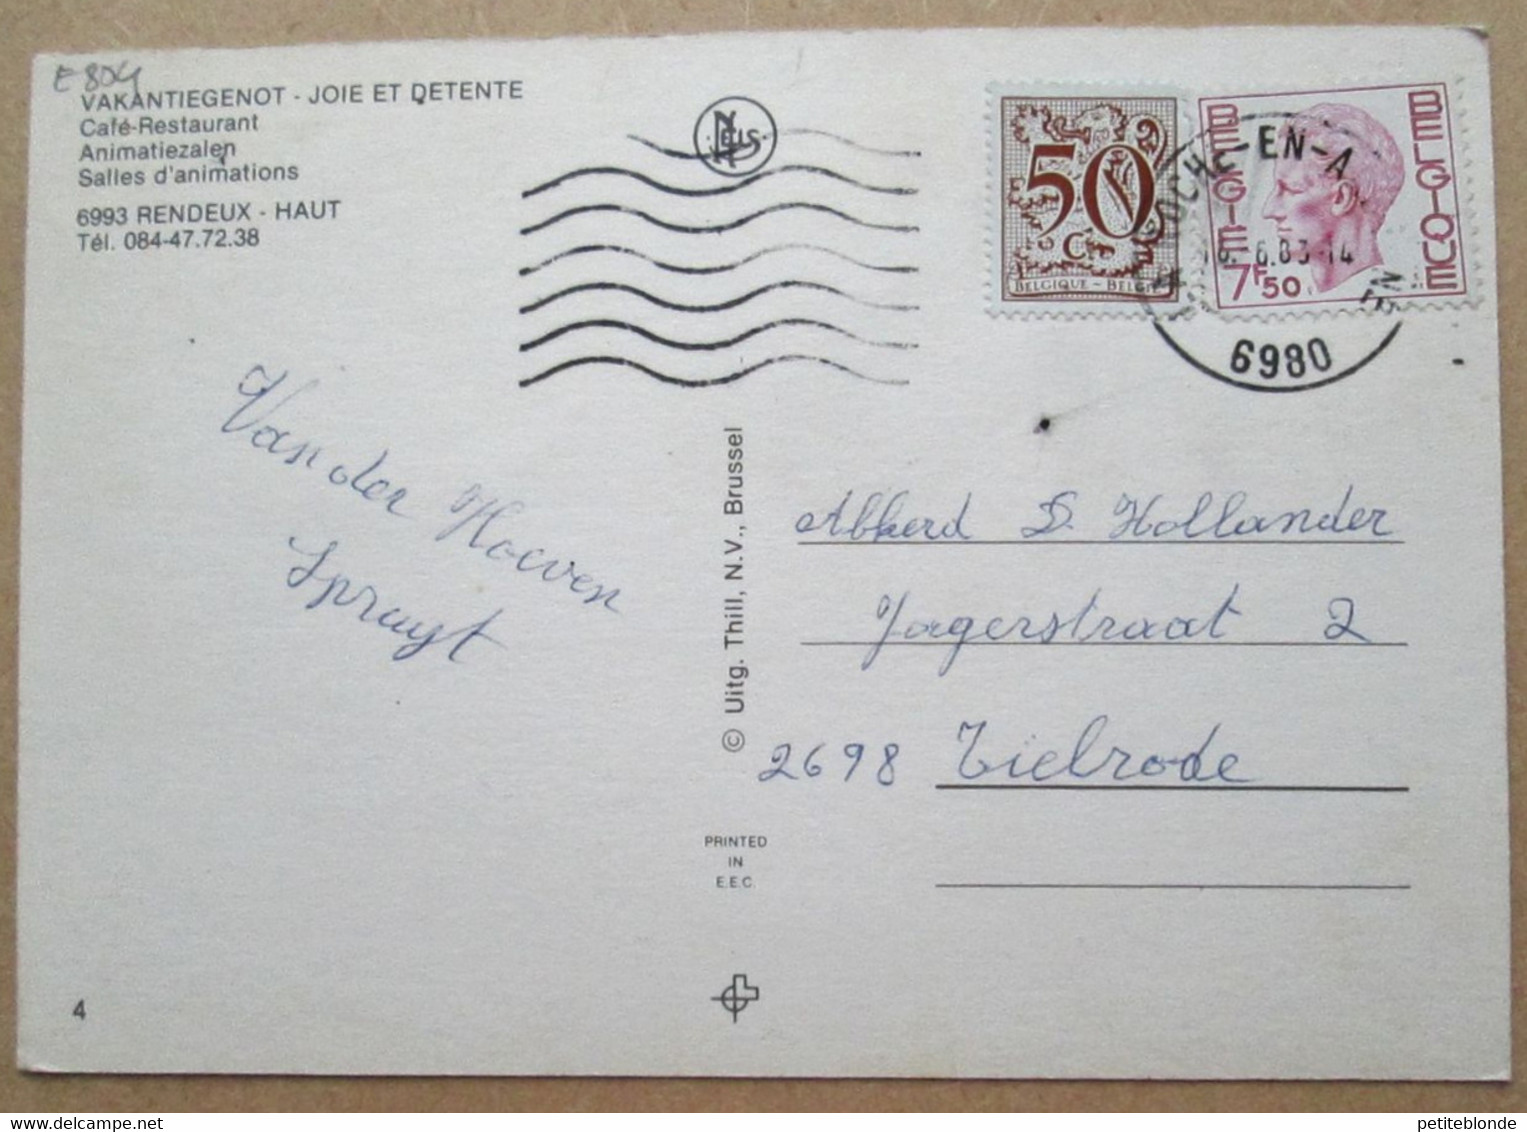 E 804
VAKANTIEGENOT - JOIE ET DETENTE
Café-Restaurant
Animatiezalen
Salles d'animations
6993 RENDEUX - HAUT
Tél. 084-47.72.38
NELS
50
C
BELGIQUE - BELGIË
BELGIË
BELGIQUE
7F50
ROCHE-EN-A
6.83-14
6980
Van der Hoeven
Spruyt
© Uitg. Thill, N.V., Brussel
D. Hollander
Jagerstraat 2
2698 Tielrode
PRINTED
IN
E.E.C.
4
petiteblonde